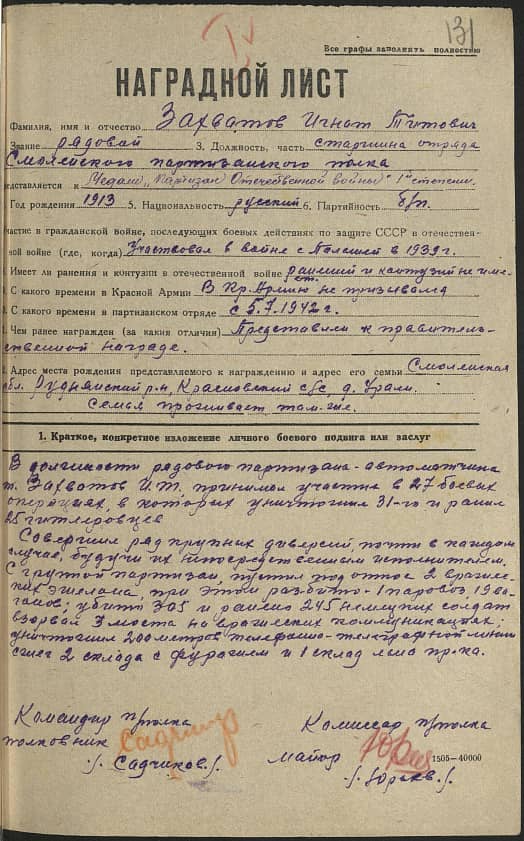 131
Все графы заполнять полностью
НАГРАДНОЙ ЛИСТ
Фамилия, имя и отчество Захватов Игнат Титович
Звание рядовой 3. Должность, часть старшина отряда
Смоленского партизанского полка
редставляется к Медали „Партизан Отечественной войны" 1ой степени.
Год рождения 1913 5. Национальность русский 6. Партийность б/п.
частие в гражданской войне, последующих боевых действиях по защите СССР в отечествен-
ной войне (где, когда) Участвовал в войне с Польшей в 1939 г.
Имеет ли ранения и контузии в отечественной войне ранений и контузий не име-
ет.
С какого времени в Красной Армии В Кр. Армию не призывался
С какого времени в партизанском отряде с 5.7.1942 г.
Чем ранее награжден (за какия отличия) Представлен к правитель-
ственной награде.
Адрес места рождения представляемого к награждению и адрес его семьи Смоленская
обл. Руднянский р-н, Красновский с/с, д.
семья проживает там-же.
1. Краткое, конкретное изложение личного боевого подвига или заслуг
В должности рядового партизана-автоматчика
т. Захватов И.Т. принимал участие в 27 боевых
операциях, в которых уничтожил 31-го и ранил
25 гитлеровцев
Совершил ряд крупных диверсий, почти в каждом
случае, будучи их непосредственным исполнителем.
С группой партизан, пустил под откос 2 вражес-
ких эшелона, при этом разбито - 1 паровоз, 19 ва-
гонов; убито 305 и ранено 245 немецких солдат
взорвал 3 моста на вражеских коммуникациях;
уничтожил 200 метров телефонно-телеграфной линии
сжег 2 склада с фуражем и 1 склад льна пр-ка.
Командир п/полка
полковник
/. Садчиков./
Комиссар п/полка
майор
/. Юрьев./
1505—40000